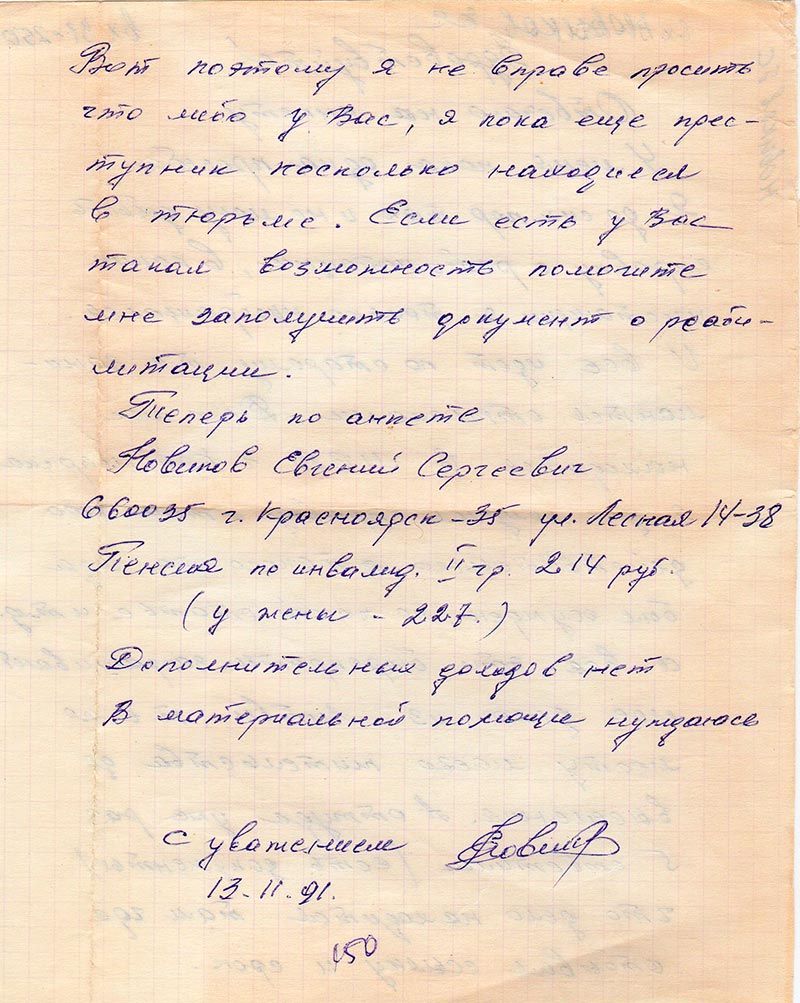 Вот поэтому я не вправе просить
что либо у Вас, я пока еще прес-
тупник поскольку находился
в тюрьме. Если есть у Вас
такая возможность помогите
мне заполучить документ о реаби-
литации.
Теперь по анкете
Новиков Евгений Сергеевич
660035 г. Красноярск-35 ул. Лесная 14-38
Пенсия по инвалид. II гр. 214 руб.
(у жены - 227.)
Дополнительных доходов нет
В материальной помощи нуждаюсь
С уважением
13.11.91.
150